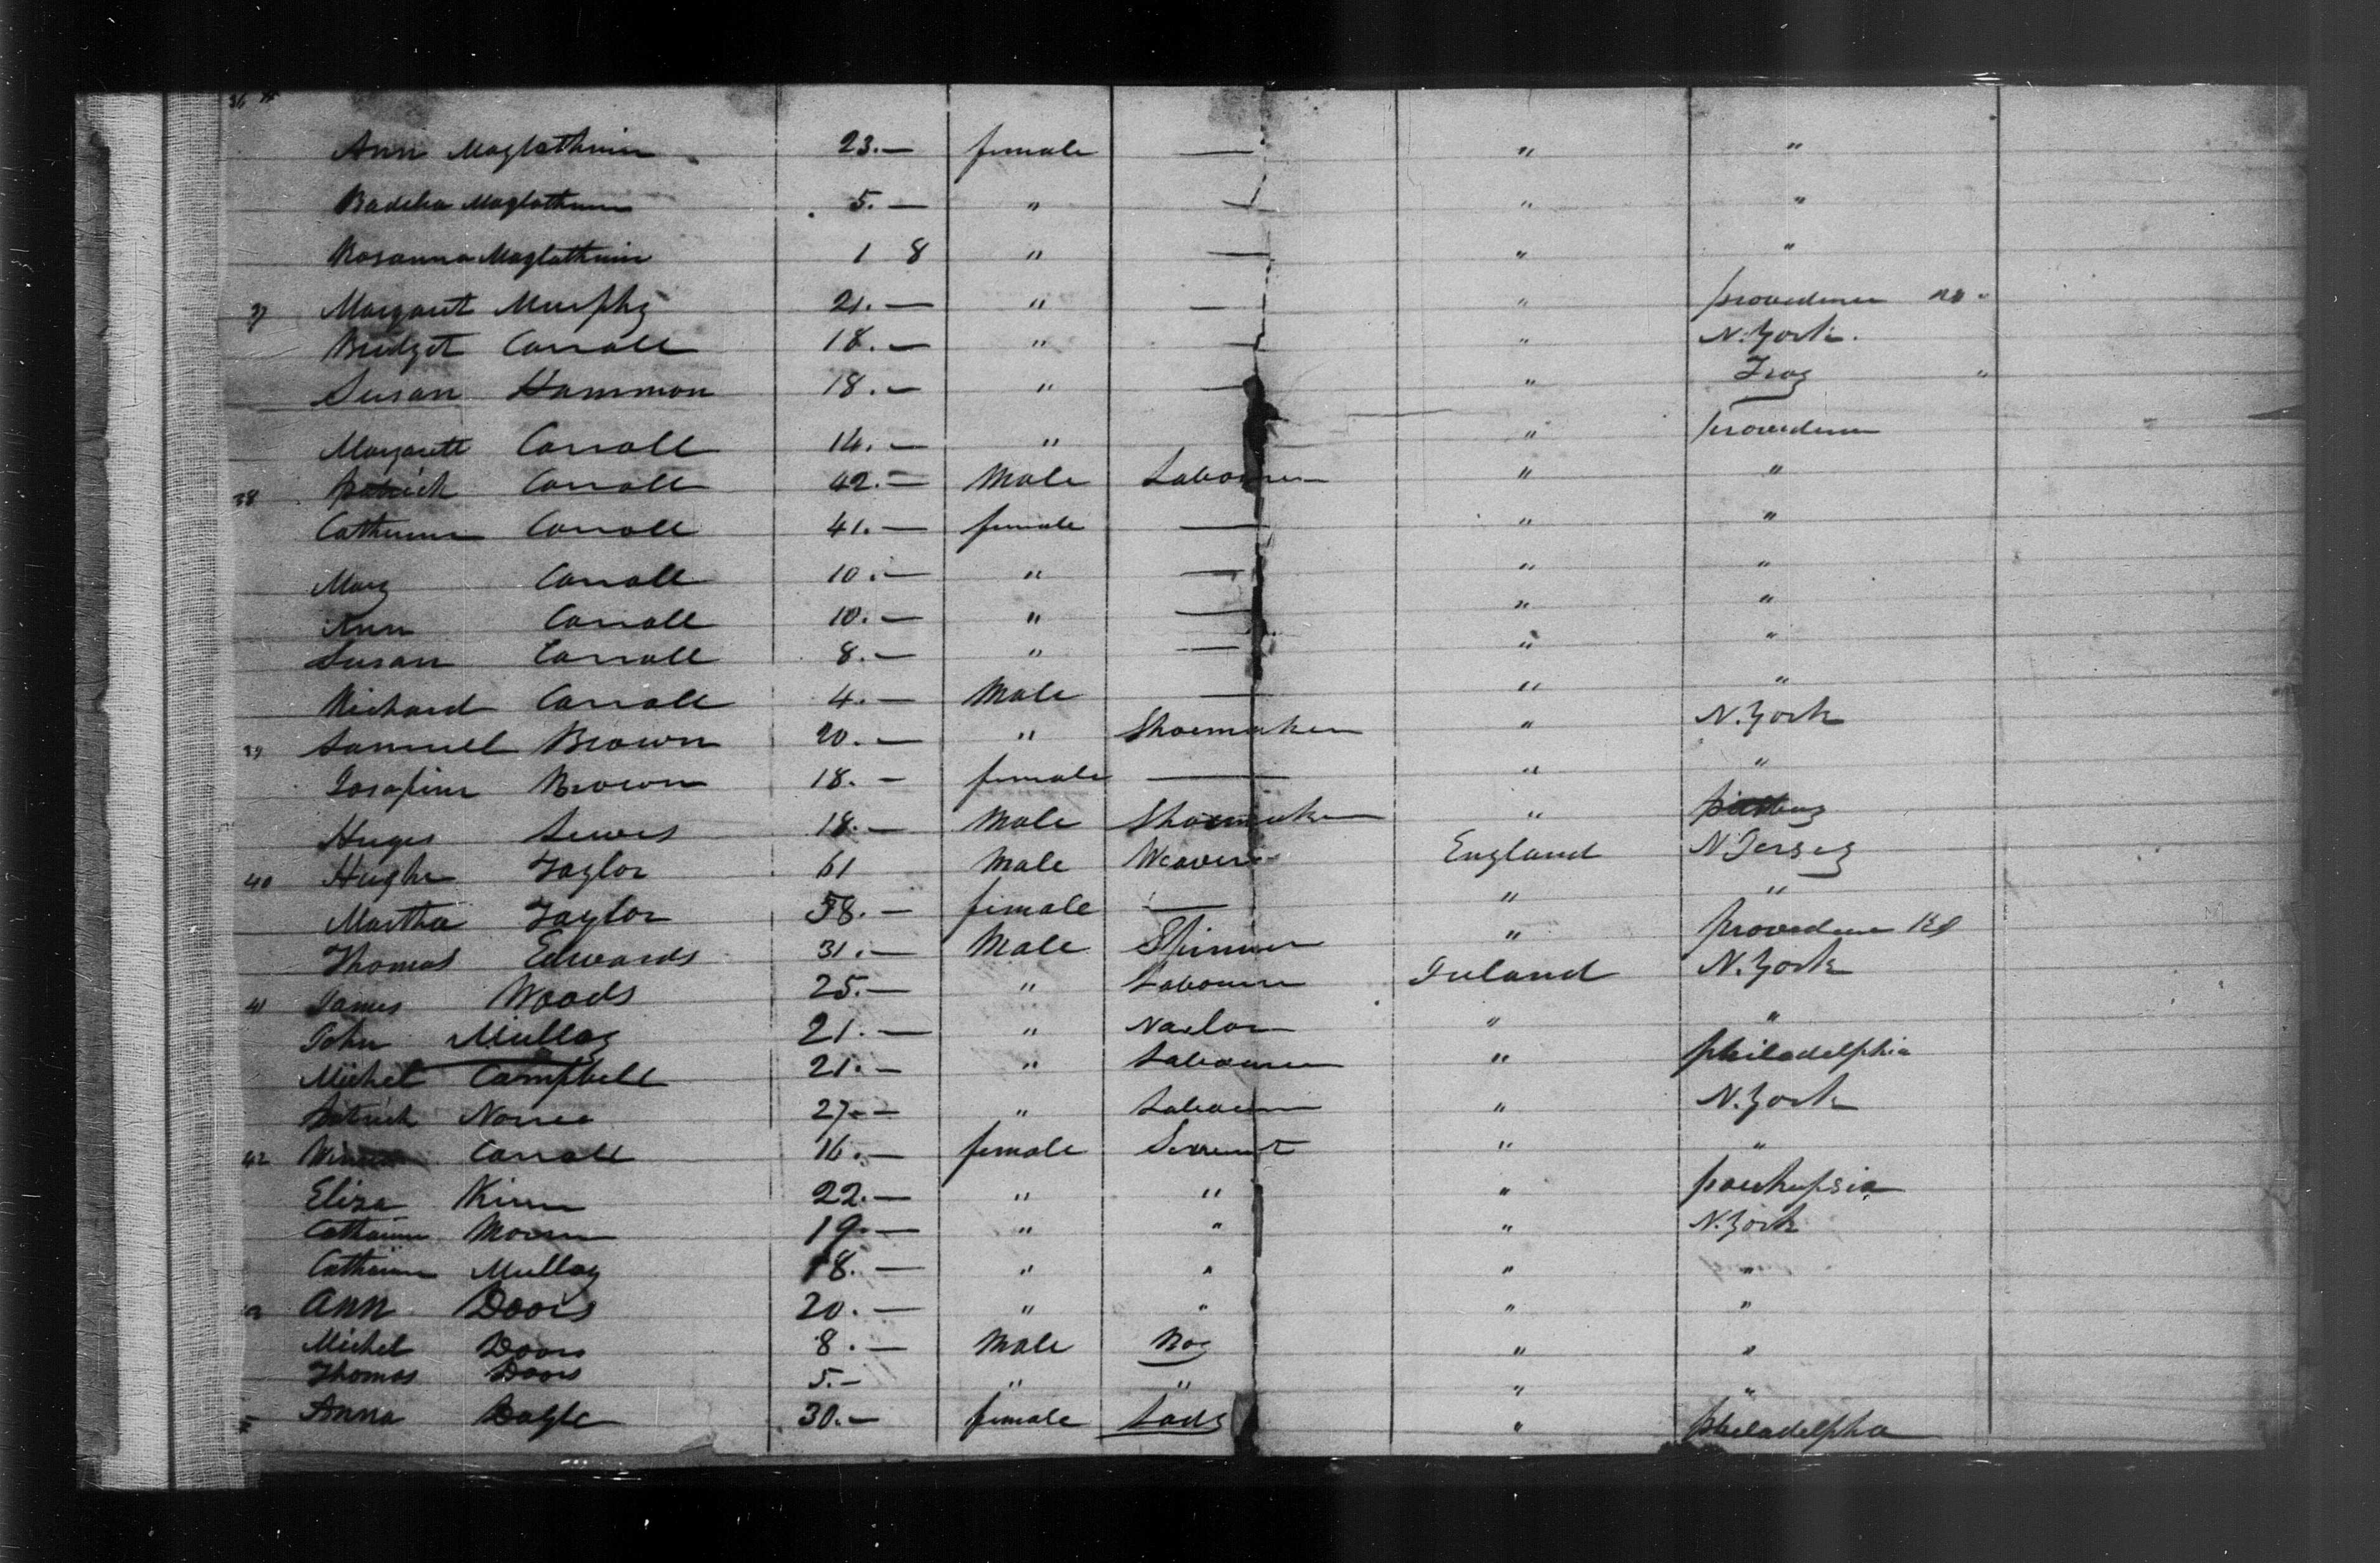 36
Ann Maglathinn 23. — female — " "
Badelia Maglathinn 5. — " — " "
Rosanna Maglathinn 1 8 " — " "
37 Margaret Murphy 21. — " — " providence
Bridget Carroll 18. — " — " N. York.
Susan Hammon 18. — " — " Troy "
Margarett Carroll 14. — " " providence
38 patrick Carroll 42. — Male Labourer " "
Catherine Carroll 41. — female — " "
Mary Carroll 10. — " — " "
Ann Carroll 10. — " — " "
Susan Carroll 8. — " — " "
Richard Carroll 4. — Male — " "
39 Samuel Brown 20. — " Shoemaker " N. York
Josafine Brown 18. — female — " "
Huges Lewes 18. — Male Shoemaker "
40 Hughe Taylor 61 Male Weaver England N Jersey
Martha Taylor 58. — female — " "
Thomas Edwards 31. — Male Spinner " providence RI
41 James Woods 25. — " Labourer Ireland N. York
John Mullay 21. — " Nailor " "
Michel Campbell 21. — " Labourer " philadelphia
patrick 27. — " Labourer " N. York
42 Carroll 16. — female Servent " "
Eliza 22. — " " " poukepsia
Catharine 19. — " " " N. York
Catherine Mullay 18. — " " " "
Ann Doors 20. — " " " "
Michel Doors 8. — Male Boy " "
Thomas Doors 5. — " " " "
Anna Bogle 30. — female Lady " philadelpha